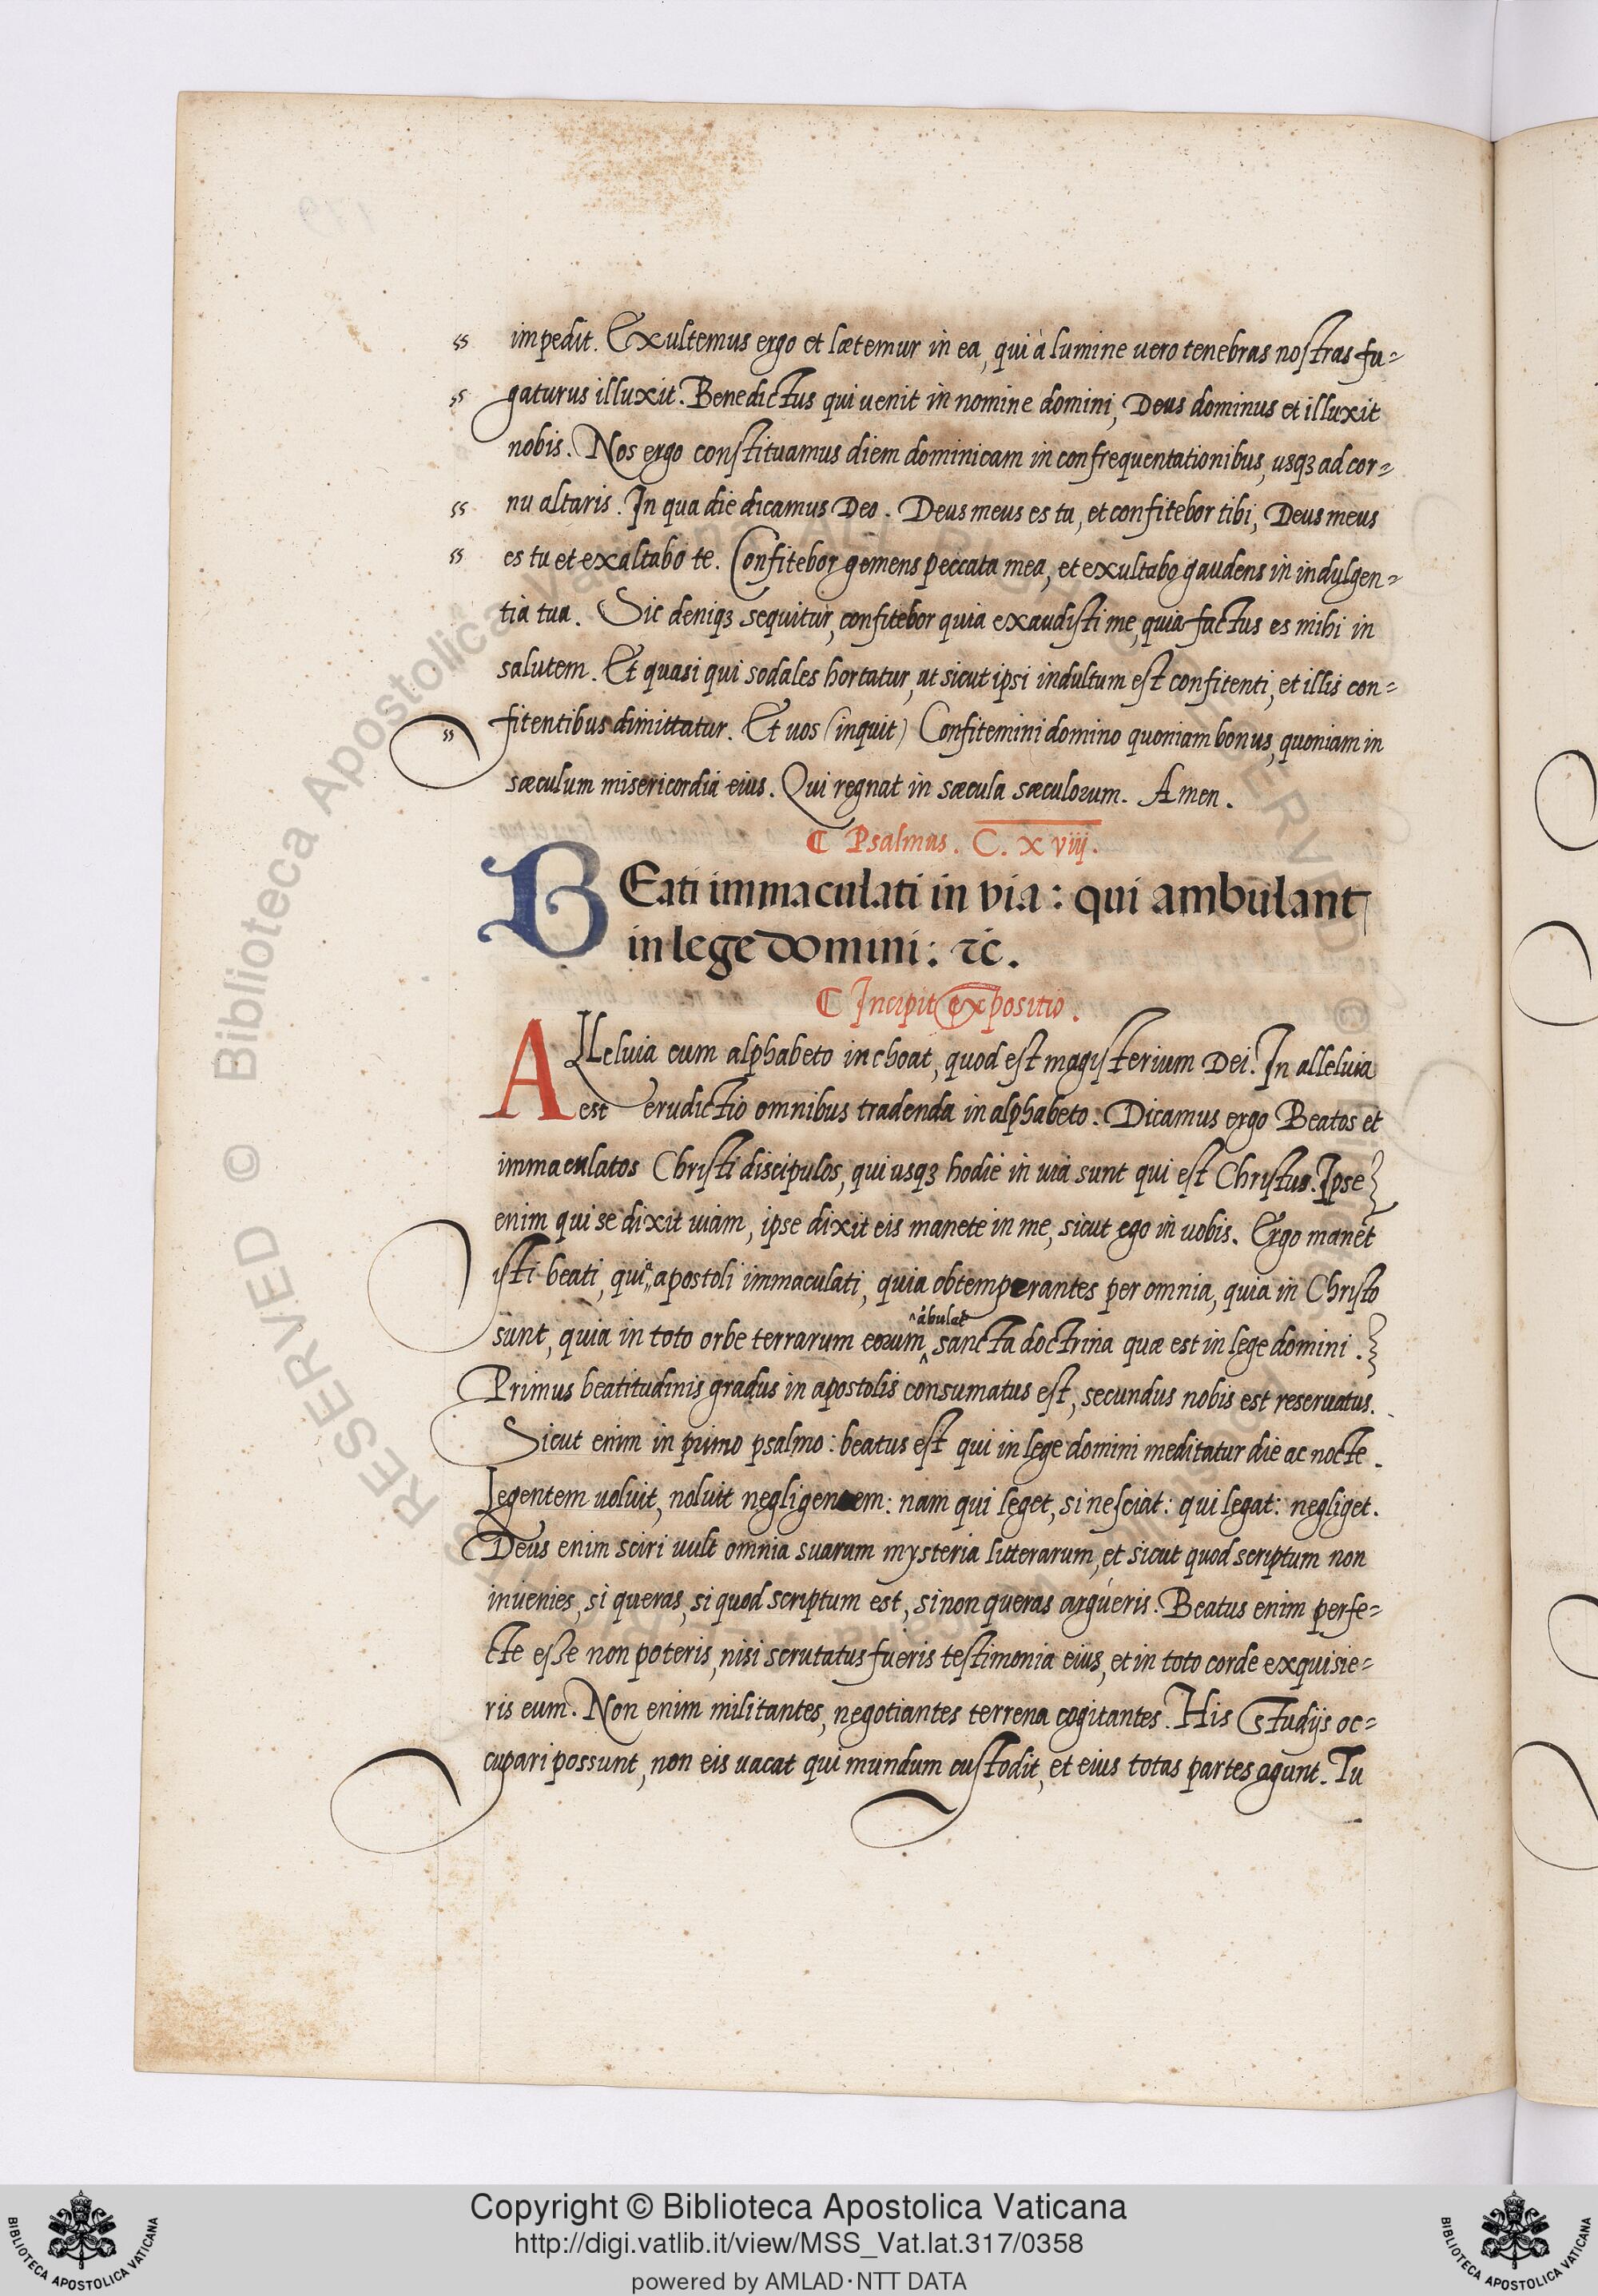 impedit. Exultemus ergo et lætemur in ea, qui à lumine uero tenebras nostras fu=
gaturus illuxit. Benedictus qui uenit in nomine domini, Deus dominus et illuxit
nobis. Nos ergo constituamus diem dominicam in confrequentationibus, usqȝ ad cor=
nu altaris. In qua die dicamus Deo. Deus meus es tu, et confitebor tibi, Deus meus
es tu et exaltabo te. Confitebor gemens peccata mea, et exultabo gaudens in indulgen=
tia tua. Sic deniqȝ sequitur, confitebor quia exaudisti me, quia factus es mihi in
salutem. Et quasi qui sodales hortatur, ut sicut ipsi indultum est confitenti, et illis con=
fitentibus dimittatur. Et uos (inquit) Confitemini domino quoniam bonus, quoniam in
sæculum misericordia eius. Qui regnat in sæcula sæculorum. Amen.
¶ Psalmus. C. x viij.
BEati immaculati in via: qui ambulant
in lege domini: ⁊c̄.
¶ Incipit expositio.
ALleluia cum alphabeto inchoat, quod est magisterium Dei. In alleluia
est erudictio omnibus tradenda in alphabeto. Dicamus ergo Beatos et
immaculatos Christi discipulos, qui usqȝ hodie in uia sunt qui est Christus. Ipse
enim qui se dixit uiam, ipse dixit eis manete in me, sicut ego in uobis. Ergo manēt
isti beati, quia apostoli immaculati, quia obtemperantes per omnia, quia in Christo
ābulat
sunt, quia in toto orbe terrarum eorum ^ sancta doctrina quæ est in lege domini.
Primus beatitudinis gradus in apostolis consumatus est, secundus nobis est reseruatus.
Sicut enim in primo psalmo: beatus est qui in lege domini meditatur die ac nocte.
Legentem uoluit, noluit negligentem: nam qui leget, si nesciat: qui legat: negliget.
Deus enim sciri uult omnia suarum mysteria litterarum, et sicut quod scriptum non
inuenies, si queras, si quod scriptum est, si non queras argueris. Beatus enim perfe=
cte esse non poteris, nisi scrutatus fueris testimonia eius, et in toto corde exquisie=
ris eum. Non enim militantes, negotiantes terrena cogitantes. His studijs oc=
cupari possunt, non eis uacat qui mundum custodit, et eius totas partes agunt. Tu
Copyright © Biblioteca Apostolica Vaticana
http://digi.vatlib.it/view/MSS_Vat.lat.317/0358
powered by AMLAD·NTT DATA